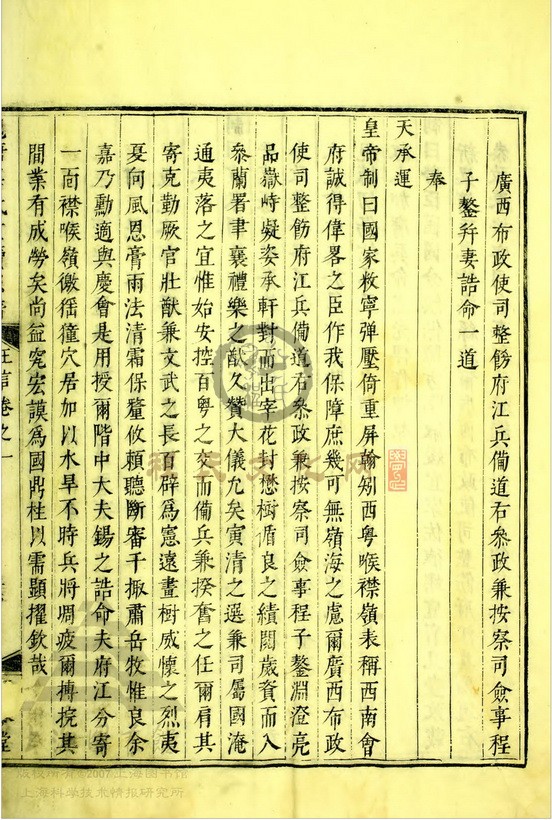 廣西布政使司整飭府江兵備道右叅政兼按察司僉事程
子鏊幷妻誥命一道
奉
天承運
皇帝制曰國家敉寧弹壓倚重屏翰矧西粤喉襟嶺表稱西南會
府誠得偉畧之臣作我保障庶幾可無嶺海之慮爾廣西布政
使司整飭府江兵備道右叅政兼按察司僉事程子鏊淵澄亮
品嶽峙凝姿承軒對而出宰花封懋樹循良之績閱歲資而入
叅蘭署聿襄禮樂之猷久贊大儀允矣寅清之選兼司屬國淹
通夷落之宜惟始安控百粤之交而備兵兼揆奮之任爾肩其
寄克勤厥官壯猷兼文武之長百辟爲憲遠畫樹威懷之烈夷
夏向風恩膏雨法清霜保釐攸頼聽斷審干掫肅岳牧惟良余
嘉乃勳適與慶會是用授爾階中大夫錫之誥命夫府江分寄
一面襟喉嶺徼猺獞穴居加以水旱不時兵將凋疲爾摶捖其
間業有成勞矣尚益究宏謨爲國鼎柱以需顯擢欽哉
卷之一
堂
版权所有©2007上海图书馆
上海科学技术情报研究所